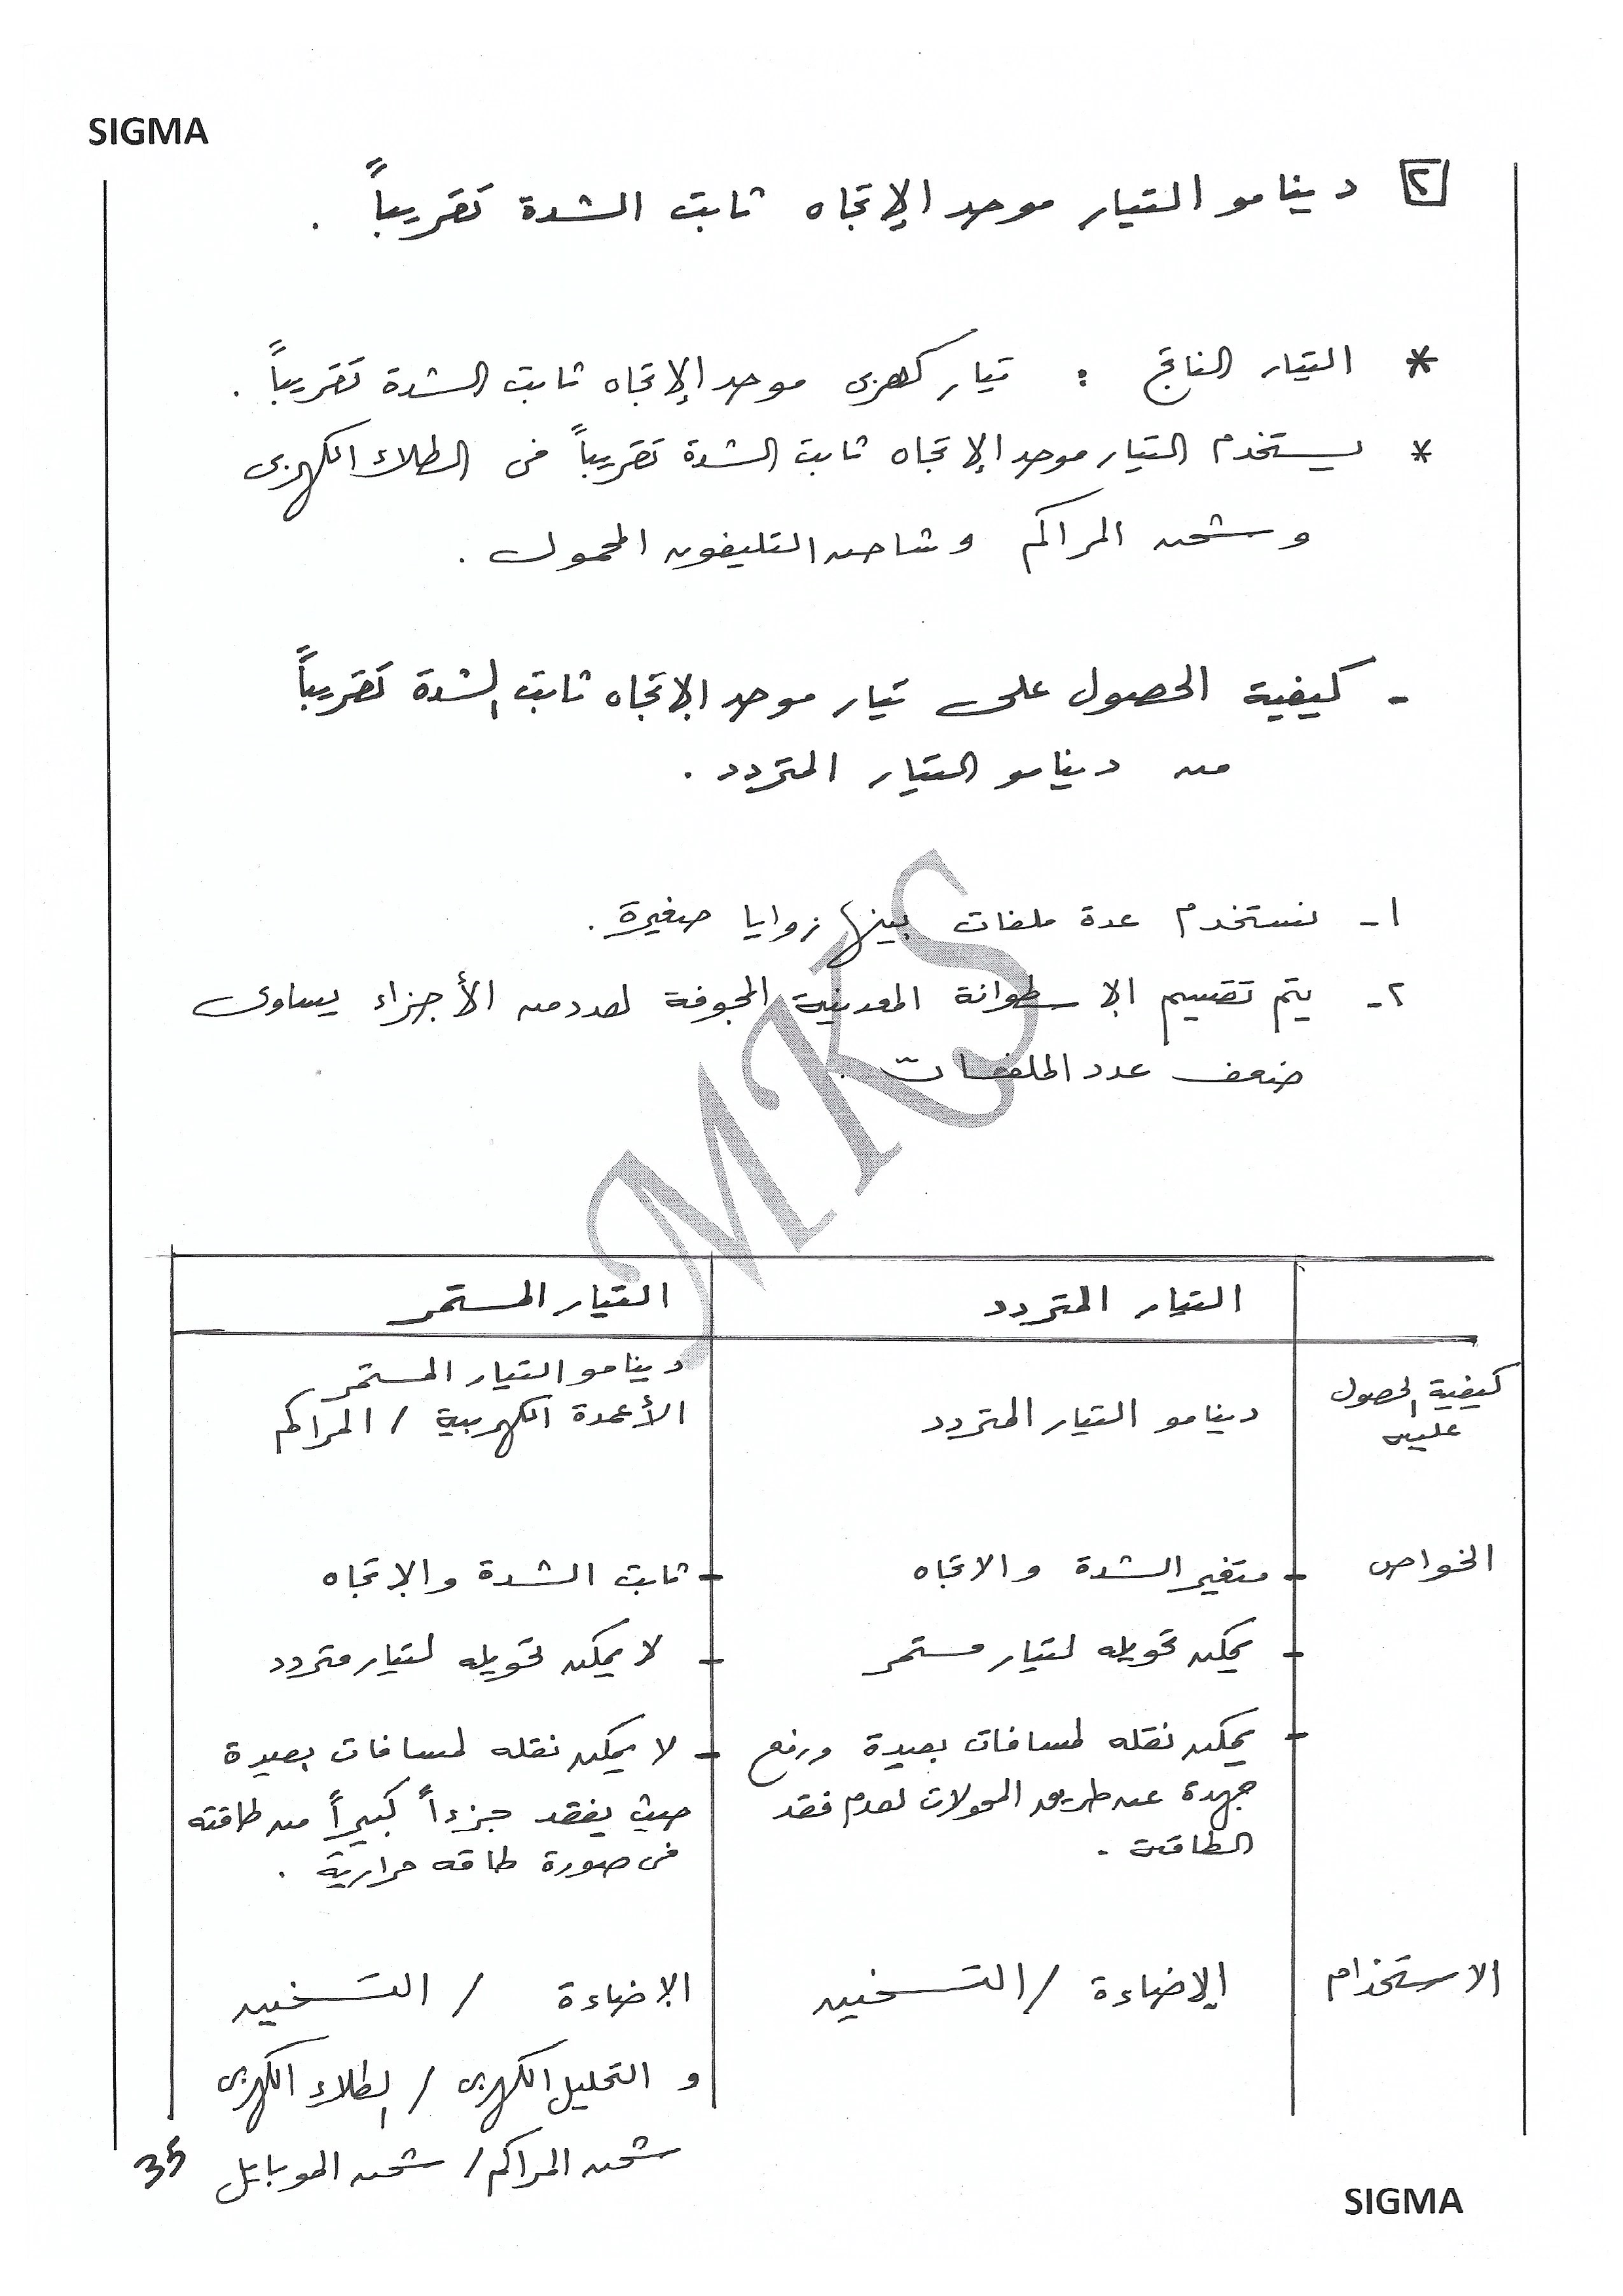 SIGMA
٢ دينامو التيار موحد الإتجاه ثابت الشدة تقريباً .
* التيار الناتج : تيار كهربى موحد الإتجاه ثابت الشدة تقريباً .
* يستخدم التيار موحد الإتجاه ثابت الشدة تقريباً فى الطلاء الكهربى
وشحن المراكم وشاحن التليفون المحمول .
- كيفية الحصول على تيار موحد الإتجاه ثابت الشدة تقريباً
من دينامو التيار المتردد .
١- نستخدم عدة ملفات بينها زوايا صغيرة .
٢- يتم تقسيم الإسطوانة المعدنية المجوفة لعدد من الأجزاء يساوى
ضعف عدد الملفات .
MKS
التيار المتردد
التيار المستمر
كيفية الحصول
عليه
دينامو التيار المتردد
دينامو التيار المستمر
الأعمدة الكهربية / المراكم
الخواص
- متغير الشدة والاتجاه
- ثابت الشدة والإتجاه
- يمكن تحويله لتيار مستمر
- لا يمكن تحويله لتيار متردد
- يمكن نقله لمسافات بعيدة ورفع
جهده عن طريق المحولات لعدم فقد
الطاقة .
- لا يمكن نقله لمسافات بعيدة
حيث يفقد جزءاً كبيراً من طاقته
فى صورة طاقه حرارية .
الاستخدام
الإضاءة / التسخين
الإضاءة / التسخين
و التحليل الكهربى / الطلاء الكهربى
شحن المراكم / شحن الموبايل
35
SIGMA